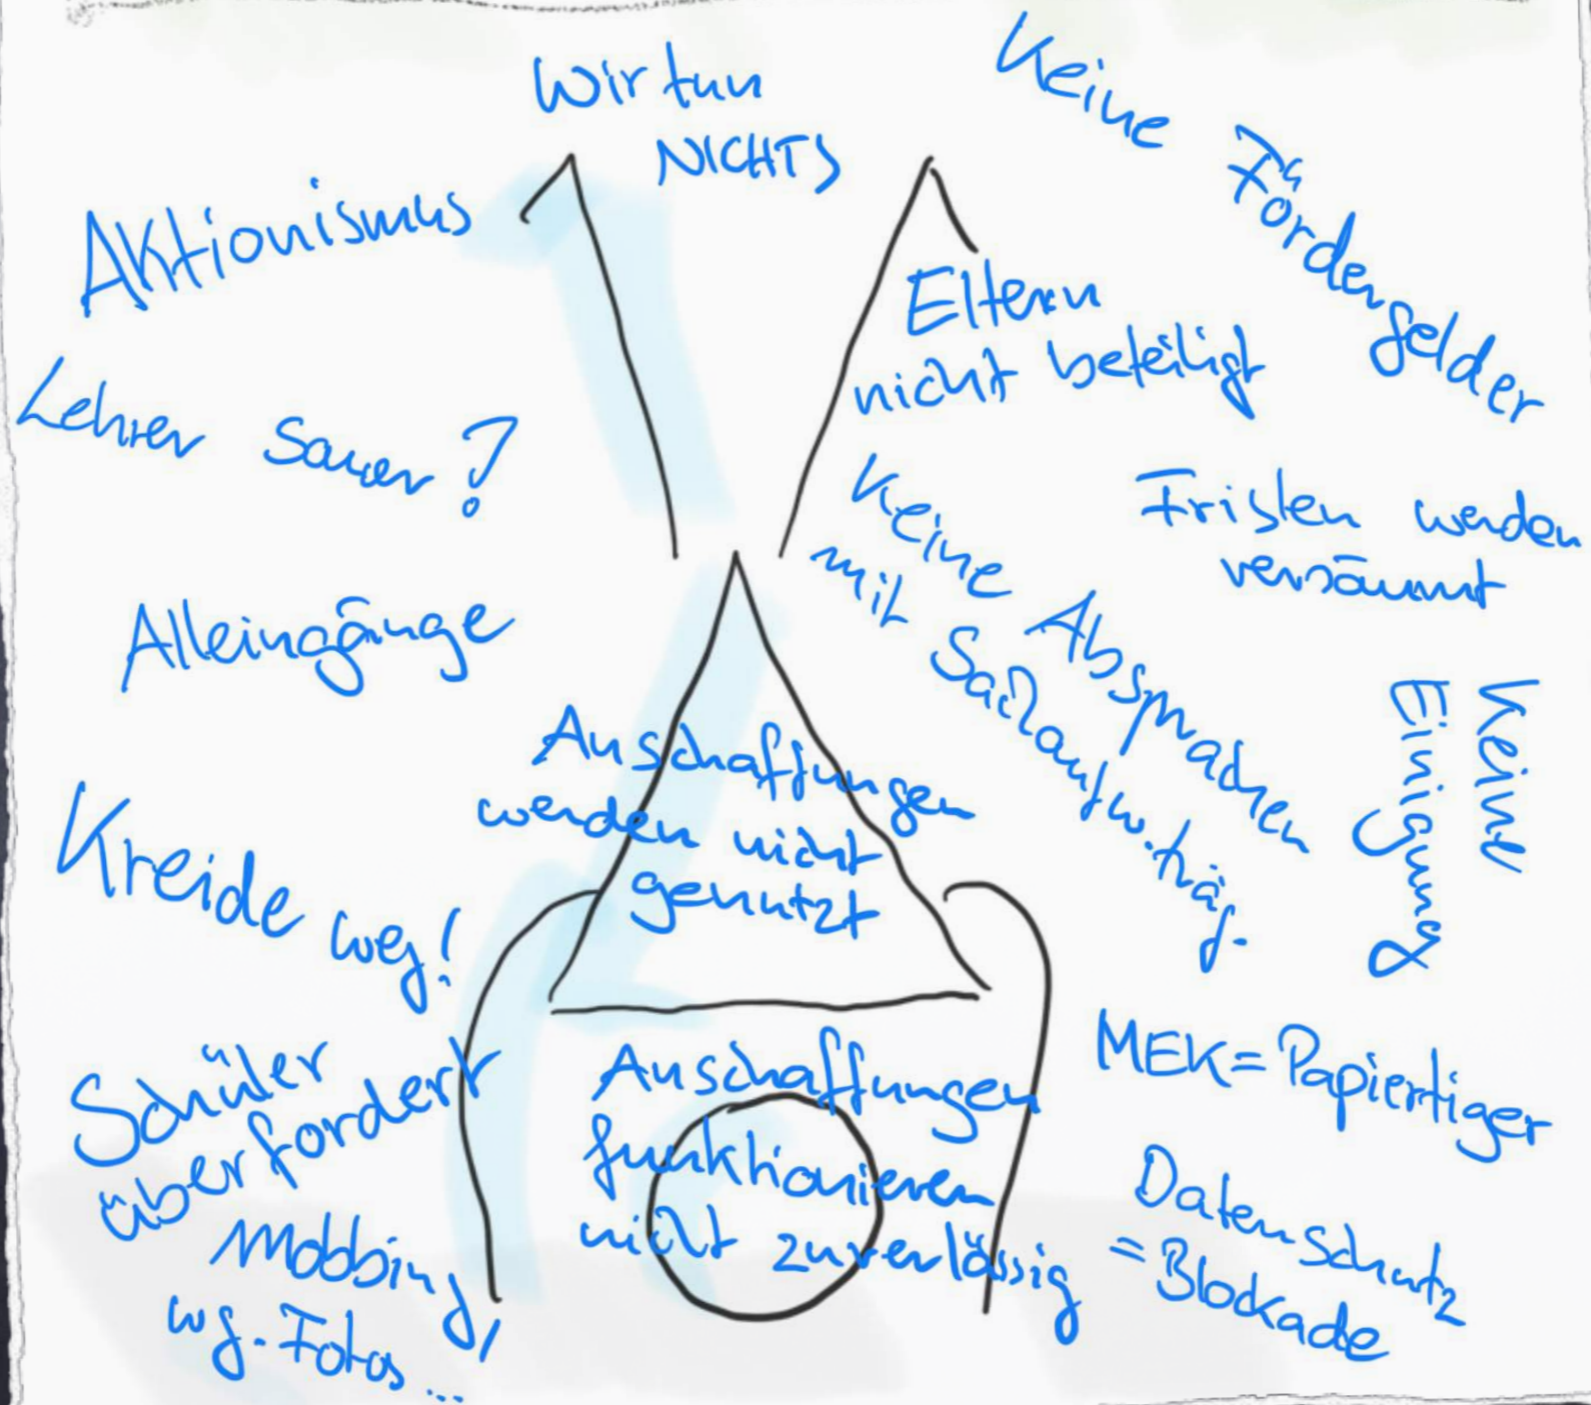 Wir tun
NICHTS
Keine Fördergelder
Aktionismus
Eltern
nicht beteiligt
Lehrer sauer?
Fristen werden
versäumt
Keine Absprachen
mit Sachaufw.träg.
Alleingänge
Keine
Einigung
Anschaffungen
werden nicht
genutzt
Kreide weg!
MEK = Papiertiger
Schüler
überfordert
Anschaffungen
funktionieren
nicht zuverlässig
Datenschutz
= Blockade
Mobbing,
wg. Fotos...